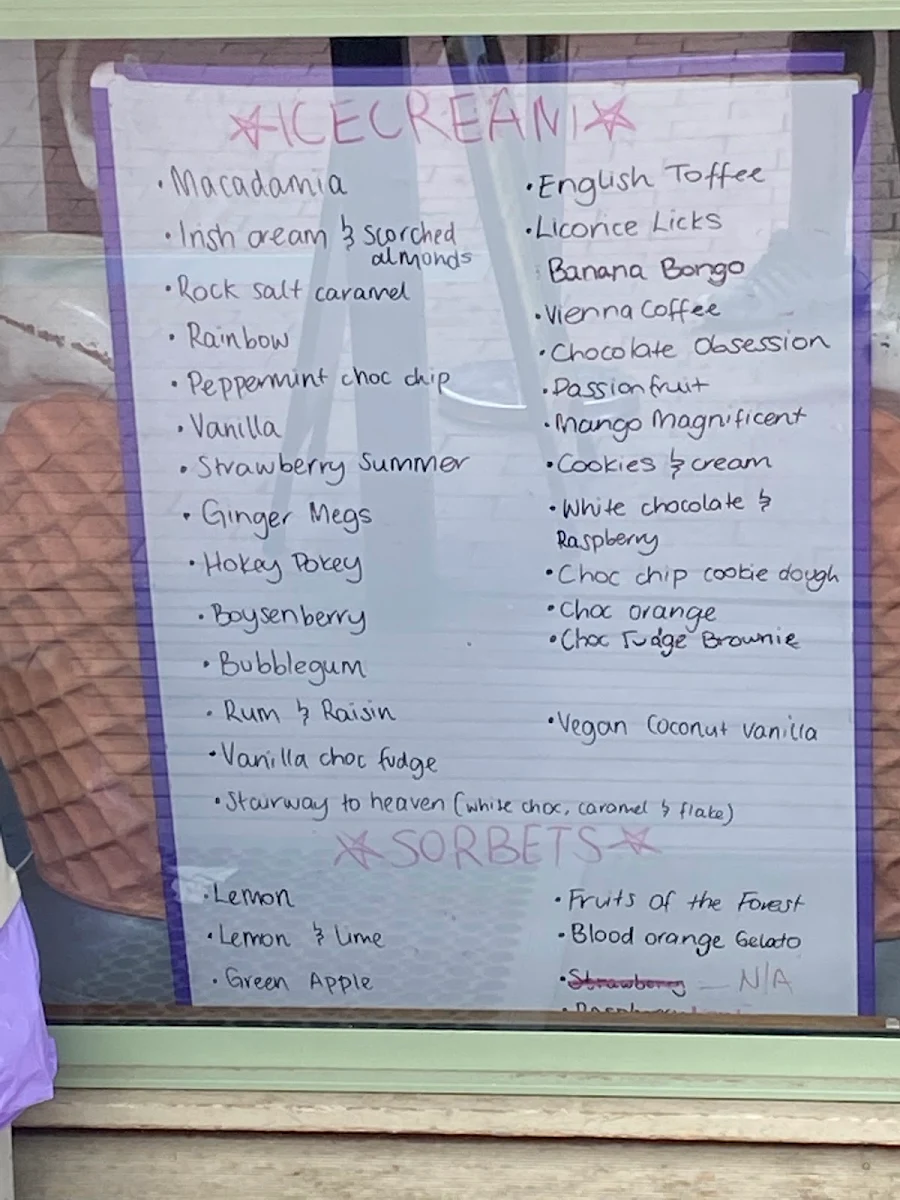 ICECREAM
• Macadamia
• Irish cream & scorched
almonds
• Rock salt caramel
• Rainbow
• Peppermint choc chip
• Vanilla
• Strawberry Summer
• Ginger Megs
• Hokey Pokey
• Boysenberry
• Bubblegum
• Rum & Raisin
• Vanilla choc fudge
• Stairway to heaven (white choc, caramel & flake)
• English Toffee
• Licorice Licks
Banana Bongo
• Vienna Coffee
• Chocolate Obsession
• Passionfruit
• Mango Magnificent
• Cookies & cream
• White chocolate &
Raspberry
• Choc chip cookie dough
• Choc orange
• Choc Fudge Brownie
• Vegan Coconut vanilla
SORBETS
• Lemon
• Lemon & Lime
• Green Apple
• Fruits of the Forest
• Blood orange Gelato
• Strawberry — N/A